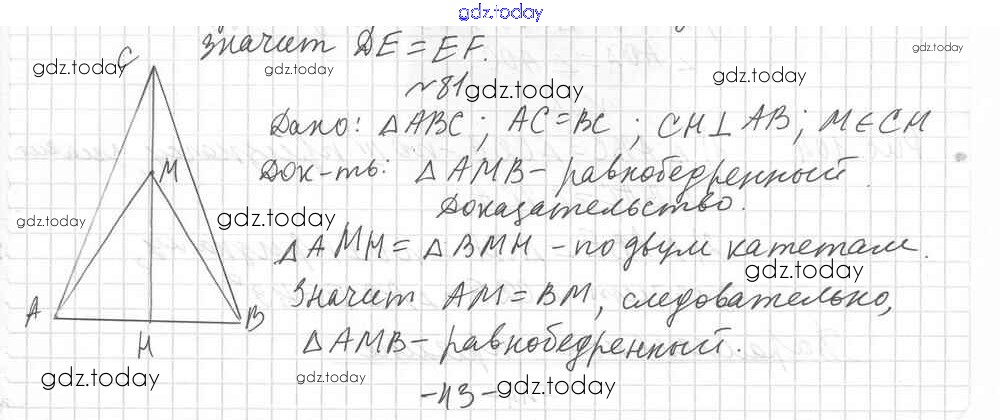 gdz.today
значит DE = EF.
gdz.today
gdz.today
gdz.today
C
№81
gdz.today
gdz.today
Дано: △ABC; AC=BC; CH⊥AB; M∈CH
M
Док-ть: △AMB – равнобедренный.
Доказательство.
gdz.today
gdz.today
△AMH = △BMH – по двум катетам.
gdz.today
Значит AM = BM, следовательно,
A
B
H
△AMB – равнобедренный.
gdz.today
gdz.today
-43-
gdz.today